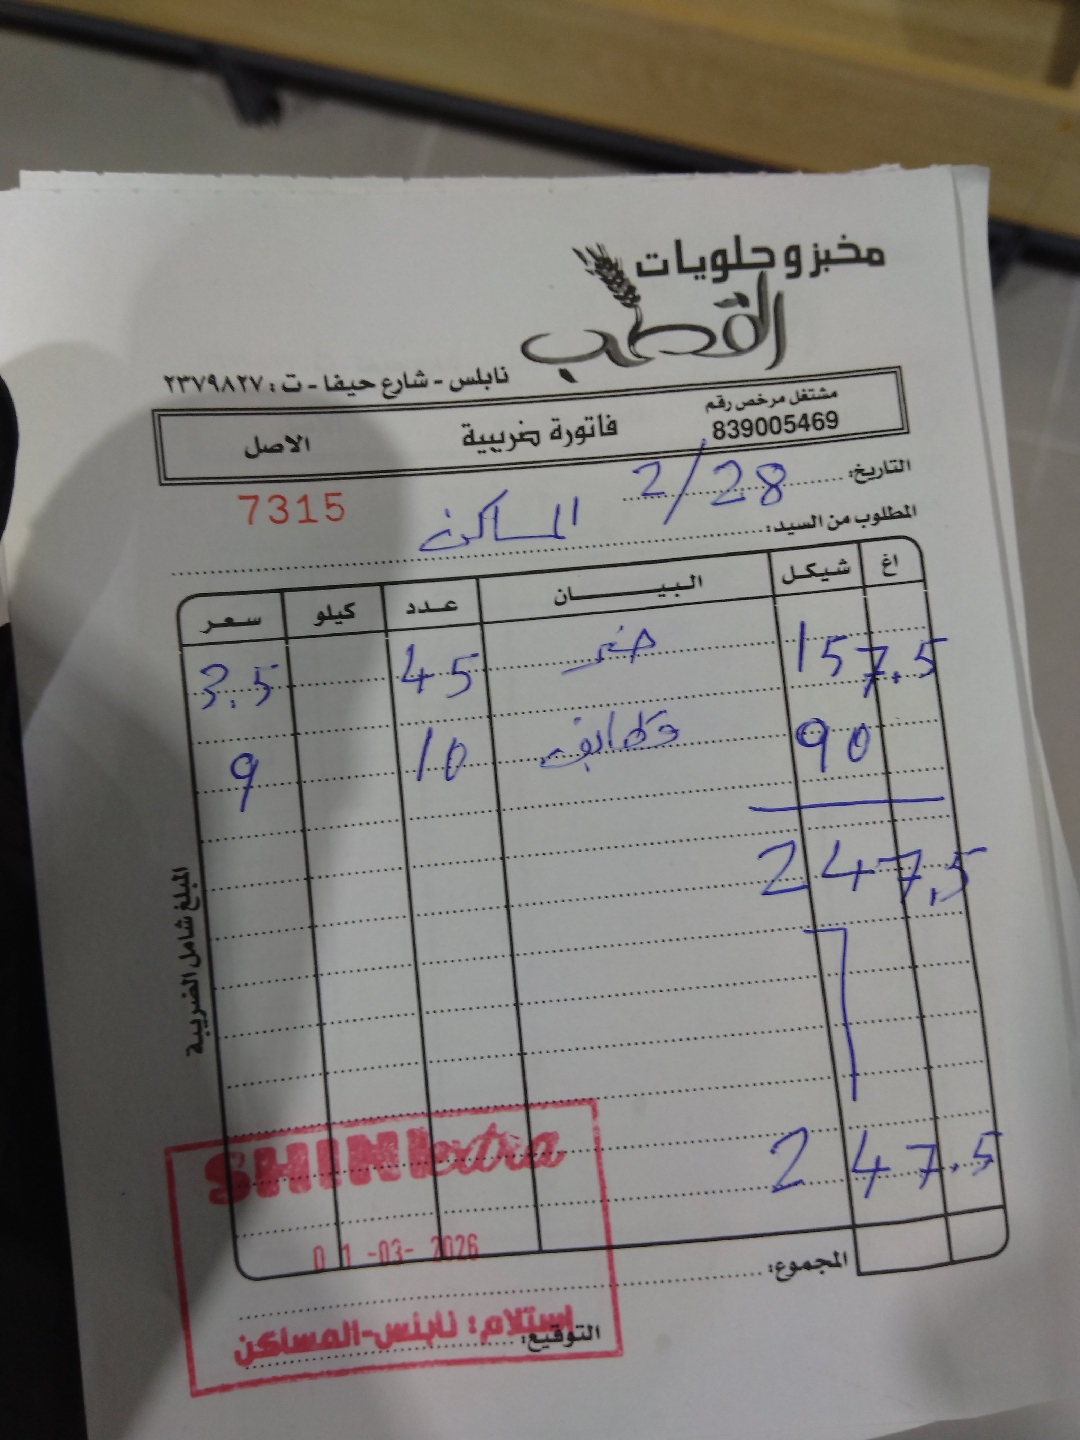 مخبز وحلويات
القطب
نابلس - شارع حيفا - ت: ٢٣٧٩٨٢٧
مشتغل مرخص رقم
839005469
فاتورة ضريبية
الاصل
التاريخ: 2/28
7315
المطلوب من السيد: المساكن
اغ شيكل البيــــان عدد كيلو سعر
157.5 45 3.5
90 قطايف 10 9
247.5
247.5
المبلغ شامل الضريبة
المجموع:
التوقيع:
SHINI extra
01-03-2026
استلام: نابلس-المساكن